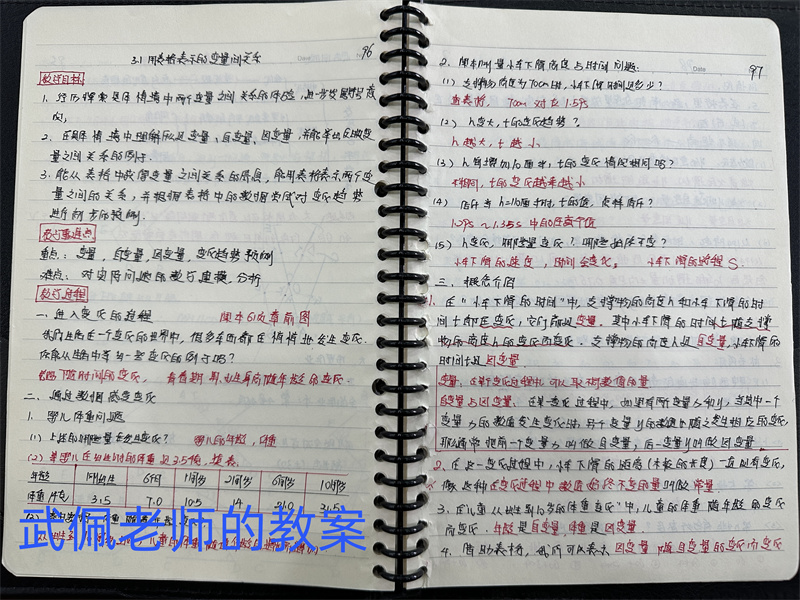 96
3.1 用表格表示的变量间关系
教学目标
1. 经历探索具体情境中两个变量之间关系的过程,进一步发展符号意
识.
2. 在具体情境中理解什么是变量、自变量、因变量,并能举出反映变
量之间关系的例子.
3. 能从表格中获得变量之间关系的信息,能用表格表示两个变
量之间的关系,并根据表格中的数据尝试对变化趋势
进行初步的预测.
教学重难点
重点: 变量,自变量,因变量,变化趋势预测
难点: 对实际问题的数学建模,分析
教学过程
一. 进入变化的世界 课本61页章前图
我们生活在一个变化的世界中,很多东西都在悄悄地发生变化.
你能从生活中举出一些变化的例子吗?
气温随时间的变化, 青春期男、女生身高随年龄的变化.
二. 通过数据感受变化
1. 婴儿体重问题
(1) 上述的哪些量在发生变化? 婴儿的年龄,体重
(2) 某婴儿在出生时的体重是3.5千克,填表
年龄 刚出生 6个月 1周岁 2周岁 6周岁 10周岁
体重/千克 3.5 7.0 10.5 14 21.0 31.5
武佩老师的教案
97
2. 课本测量小车下滑高度与时间问题.
(1) 支撑物高度为70cm时,小车下滑时间是多少?
由表格, 70cm 对应 1.59s
(2) h变大,t的变化趋势?
h越大,t越小
(3) h每增加10厘米,t的变化情况相同吗?
不相同,t的变化越来越小
(4) 估计当h=110厘米时,t的值,怎样估计?
1.29s ~ 1.35s 中的任意个值
(5) h变化,哪些量变化?哪些始终不变?
小车下滑的速度,时间会变化. 小车下滑的路程S.
三. 概念介绍
1. 在“小车下滑的时间”中,支撑物的高度h和小车下滑的时
间t都在变化,它们都是变量. 其中小车下滑的时间t随支撑
物的高度h的变化而变化. 支撑物的高度h是自变量,小车下滑的
时间t是因变量.
变量: 在某变化过程中可以取不同数值的量
自变量与因变量: 在某一变化过程中,如果有两个变量x和y,当其中一个
变量x的数值发生变化时,另一个变量y的数值也随之发生相应的变化,
那么通常把前一个变量x叫做自变量,后一变量y叫做因变量.
2. 在这一变化过程中,小车下滑的距离(木板的长度)一直没有变化,
像这种在变化过程中数值始终不变的量叫做常量
3. 在“儿童从出生到10岁的体重变化”中,儿童的体重随年龄的变化
而变化. 年龄是自变量,体重是因变量
4. 借助表格,我们可以表示因变量随自变量的变化而变化